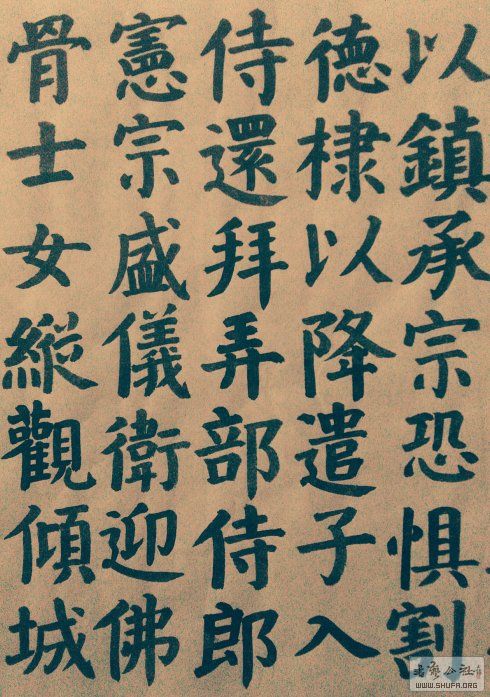 以鎮承宗恐惧割
德棣以降遣子入
侍還拜弄部侍郎
憲宗盛儀衛迎佛
骨士女縱觀傾城
WWW.SHUFA.ORG